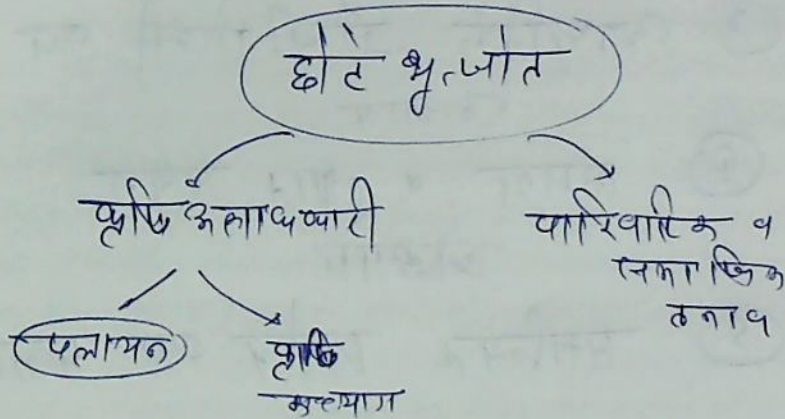 छोटे भू-जोत
कृषि अलाभकारी
पारिवारिक व
सामाजिक
तनाव
पलायन
कृषि